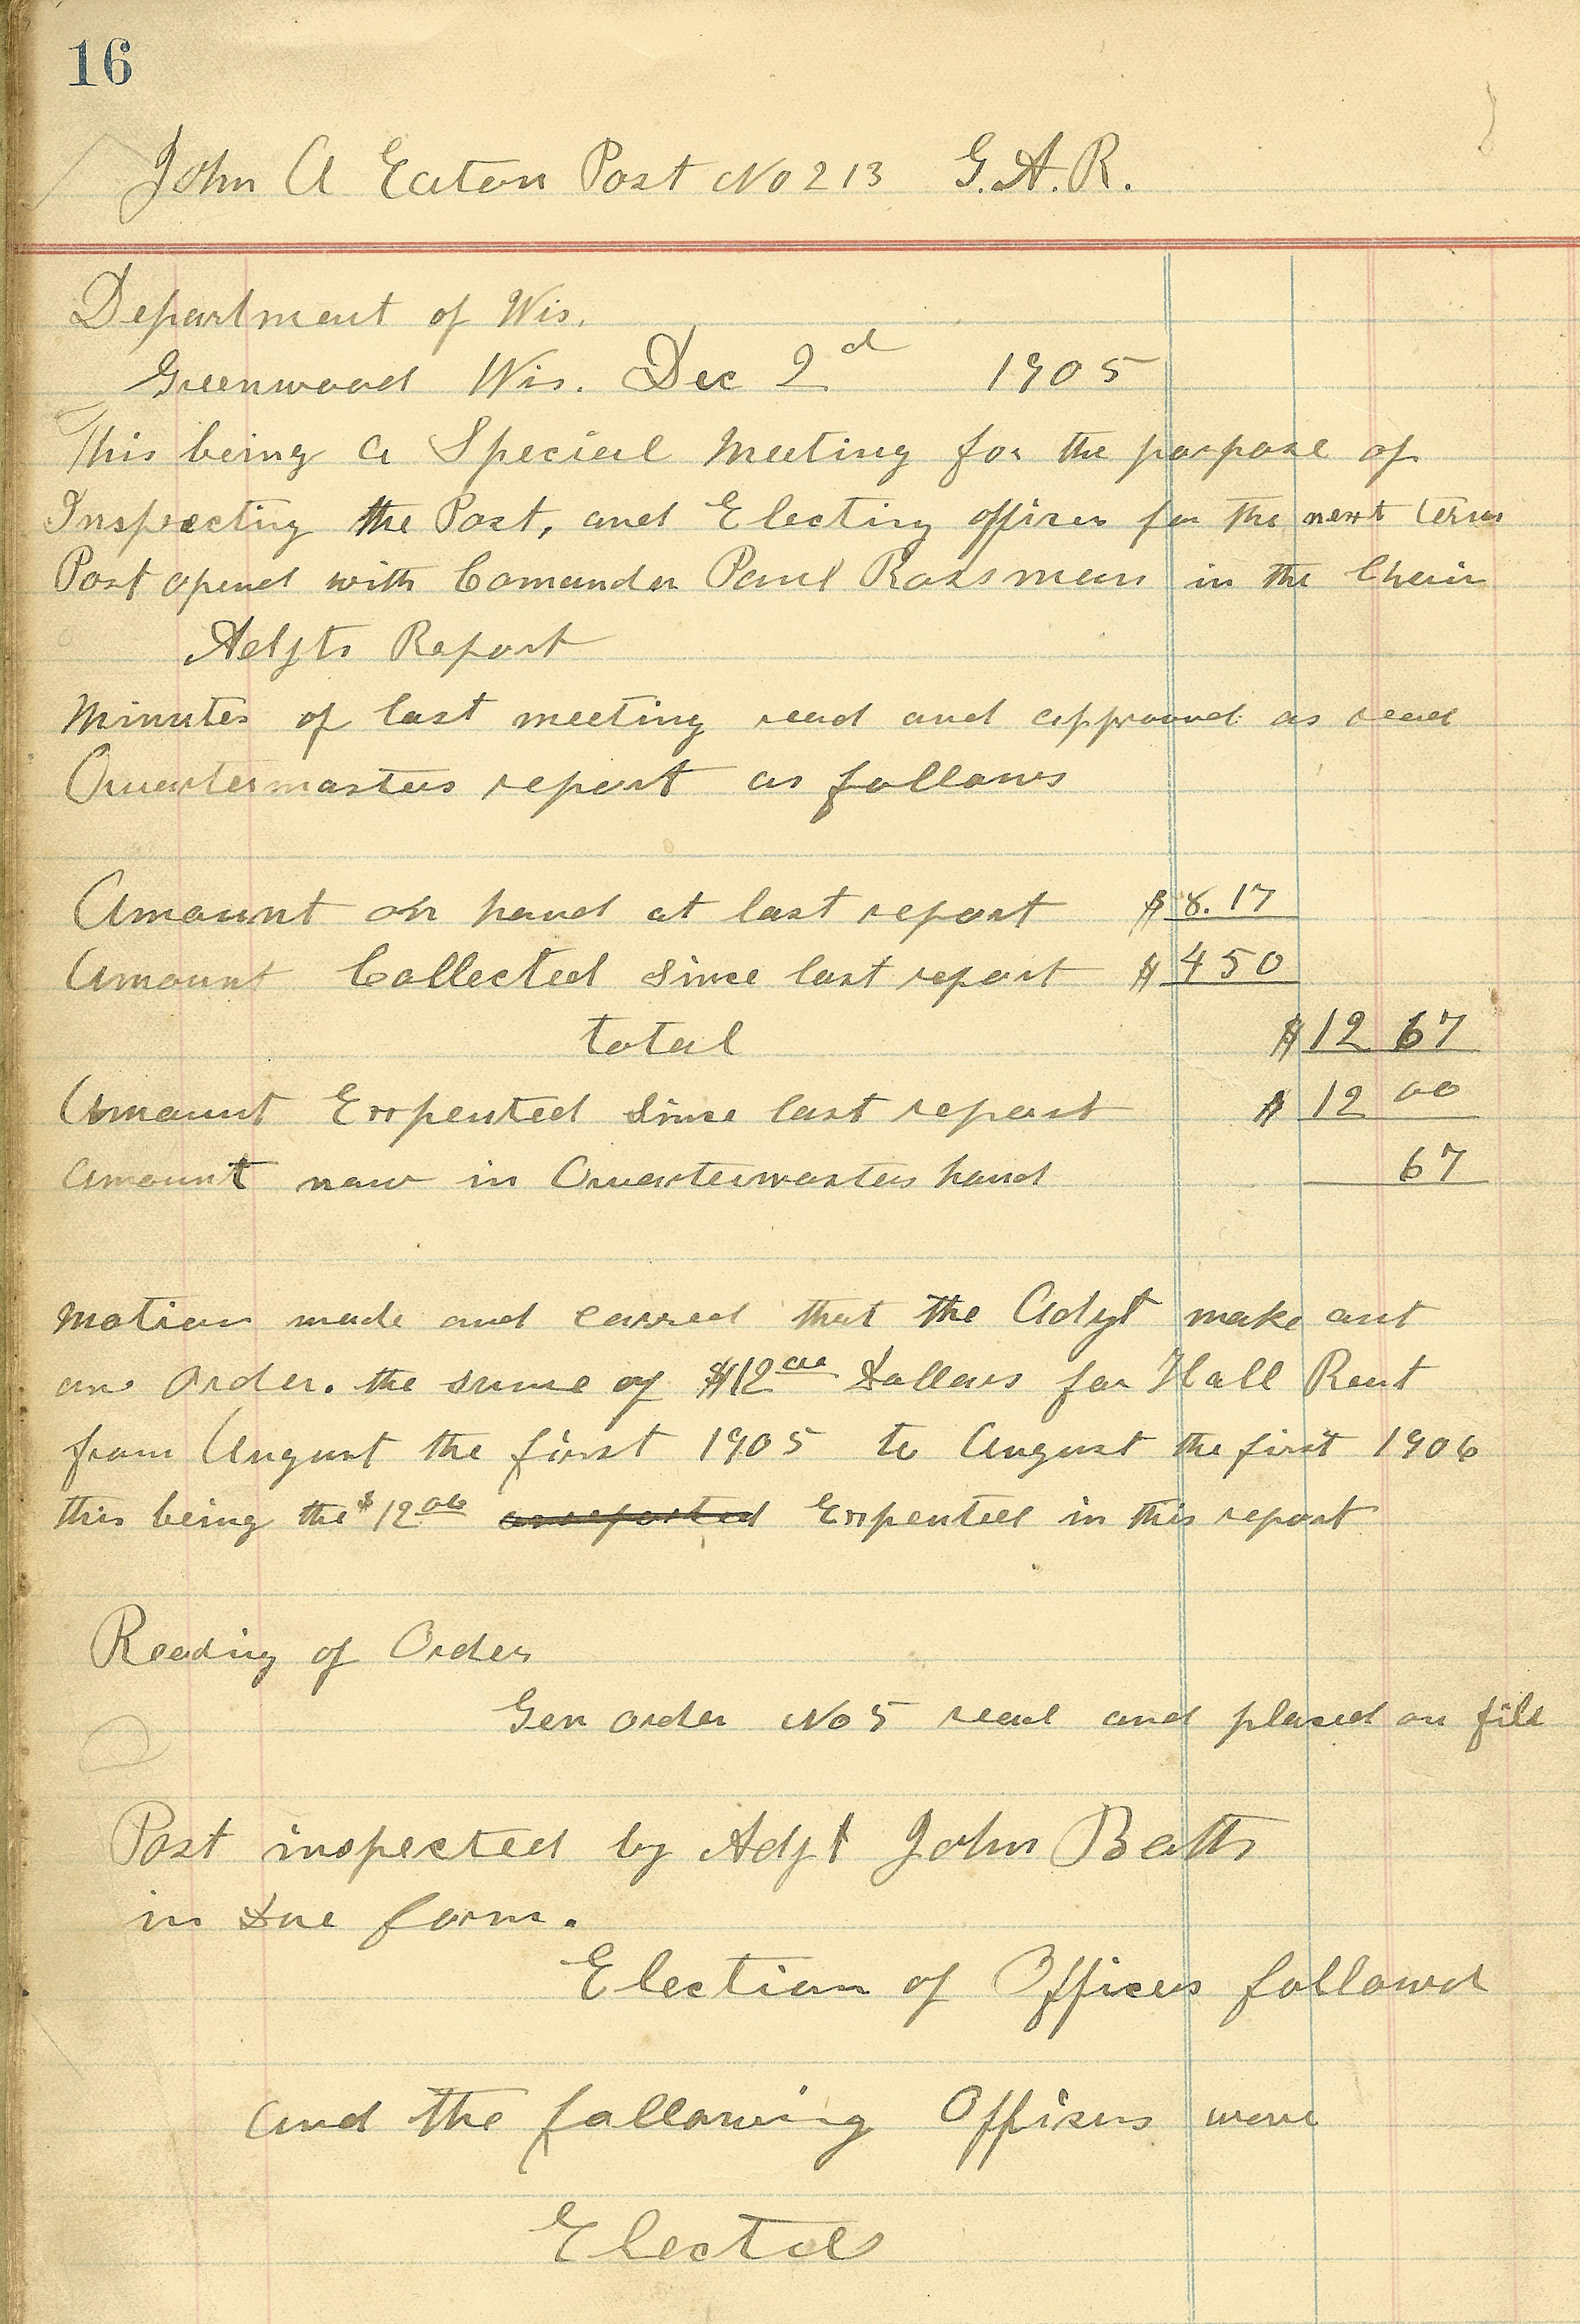 16
John A Eaton Post No 213 G.A.R.
Department of Wis.
Greenwood Wis. Dec 2d 1905
This being a Special Meeting for the porpose of
Inspecting the Post, and Electing offises for the next term
Post opend with Comander Paul Rossman in the Chair
Adjts Report
Minutes of last meeting read and approved as read
Quartermasters report as follows
Amount on hand at last report $ 8.17
Amount Collected since last report $ 4 50
total $ 12 67
Amount Expented since last report $ 12 00
amount now in Quartermasters hand 67
motion made and carred that the Adjt make out
an order. the sume of $12 00 Dollars for Hall Rent
from August the first 1905 to August the first 1906
this being the $12 00 as reported Expented in this report
Reading of Order
Gen order No 5 read and plased on file
Post inspected by Adjt John Betts
in Due form.
Election of Offices followd
and the following Offisers were
Elected